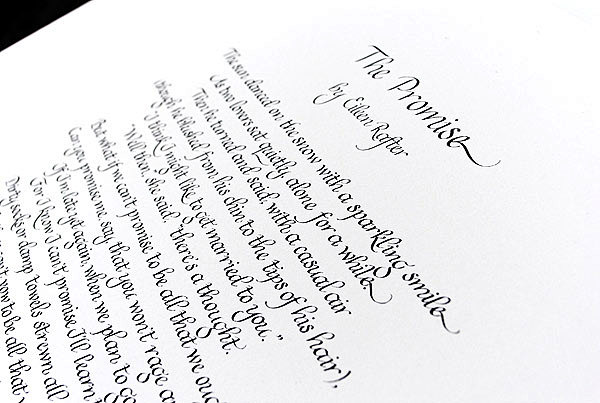 The Promise
by Eileen Rafter
The sun danced on the snow with a sparkling smile
As two lovers sat quietly, alone for a while.
Then he turned and said, with a casual air
(though he blushed from his chin to the tips of his hair),
"I think I might like to get married to you."
"Well then," she said, "there's a thought.
But what if we can't promise to be all that we
Can you promise me, say, that you won't rage
If I'm late yet again, when we plan to
For I know I can't promise I'll learn
Dirty socks or damp towels strewn all
can't vow to be all that